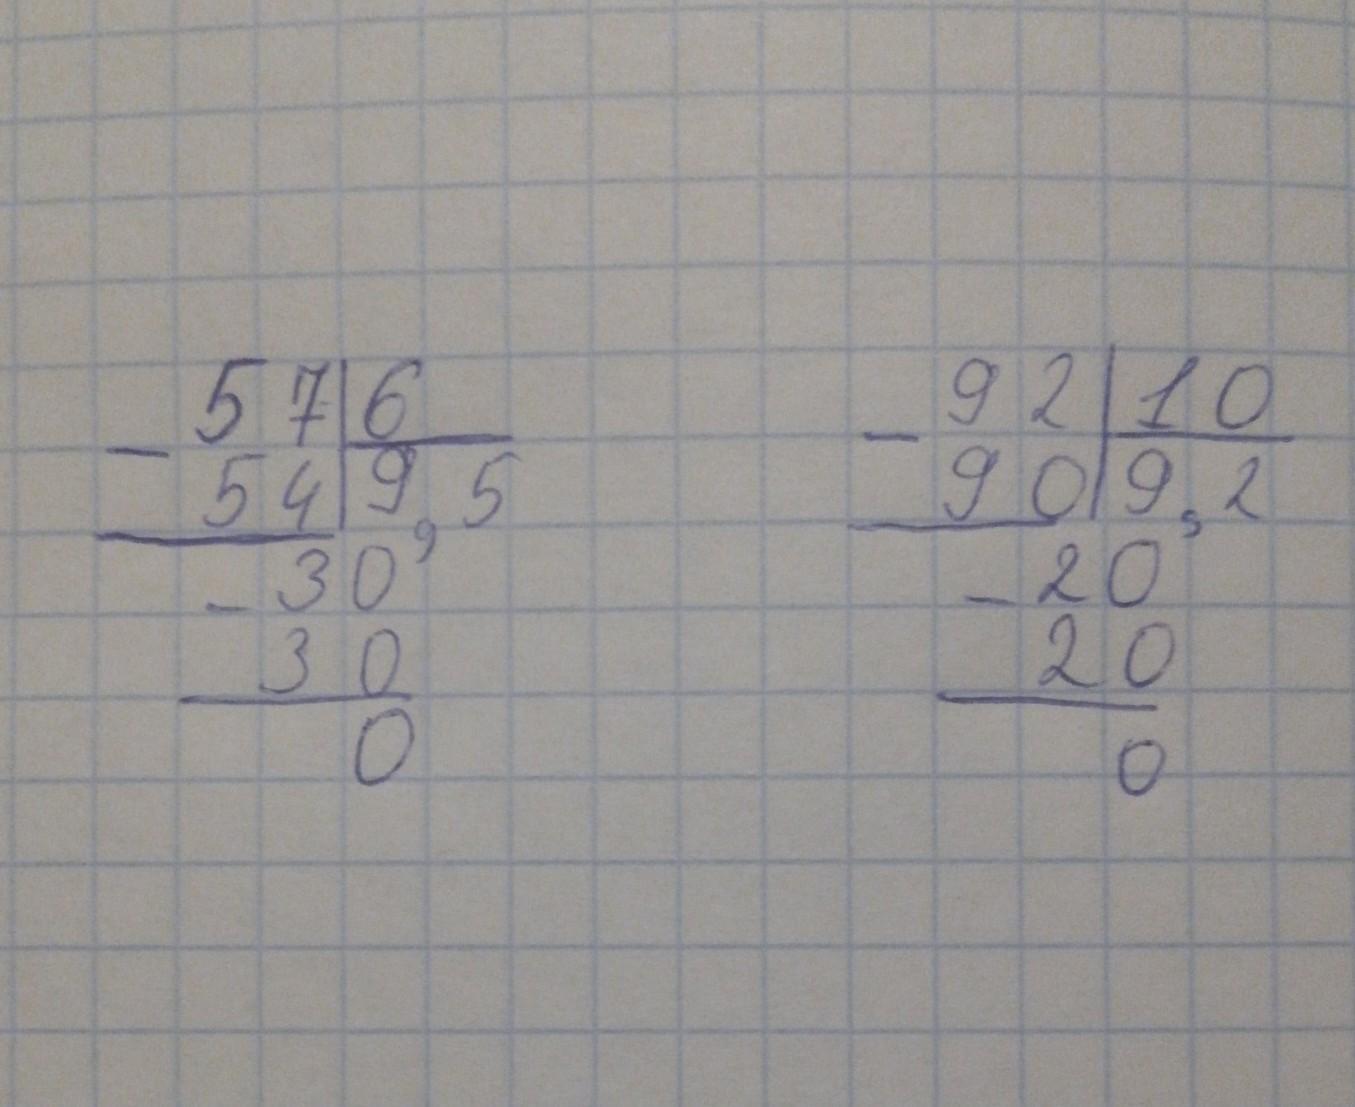 57 6
- 54 9,5
- 30
30
0
92 10
- 90 9,2
- 20
20
0